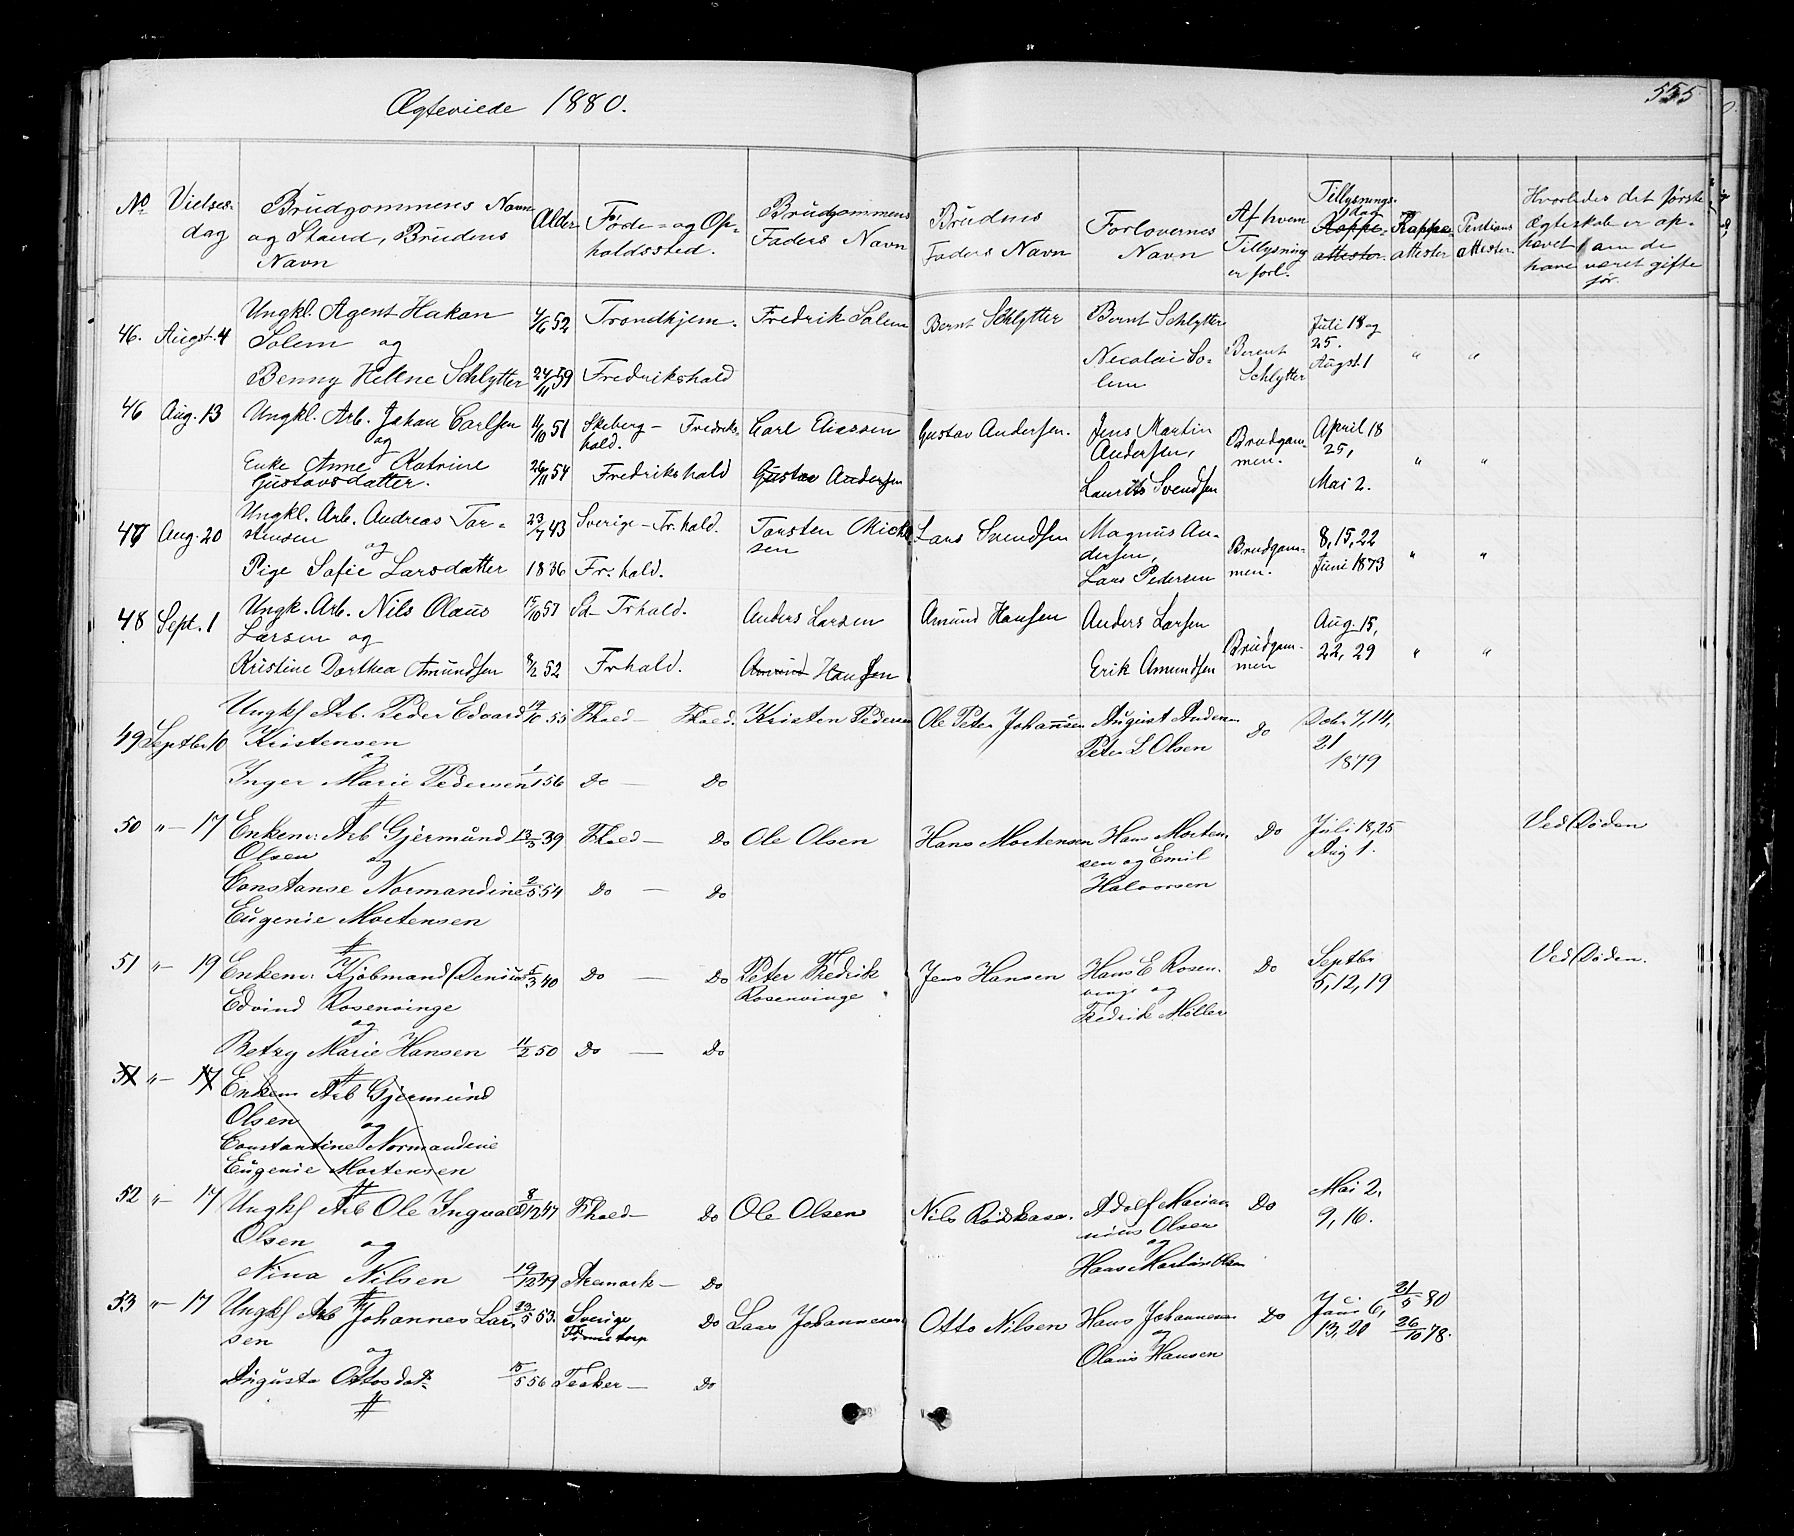 Ægteviede 1880.
555
No
Vielses-
dag
Brudgommens Navn
og Stand, Brudens
Navn
Alder
Føde- og Op-
holdssted.
Brudgommens
Faders Navn
Brudens
Faders Navn
Forlovernes
Navn
Af hvem
Tillysning
er forl.
Tillysnings-
dag
Koppe-
attester.
Koppe-
attester
Hvorledes det første
Ægteskab er op-
hævet / om de
have været gifte
før.
46. Augst. 4 Ungkl. Agent Hakan 4/6 52 Trondhjem. Fredrik Solem Bernt Schlytter Bernt Schlytter Juli 18 og
Solem og Necolai So- Berent 25.
Benny Hellne Schlytter 24/11 59 Fredrikshald lem Schlytter Augst. 1 " "
46 Aug. 13 Ungkl. Arb. Johan Carlsen 11/10 51 Skeberg - Fredriks- Carl Eliassen Gustav Andersen. Jens Martin Brudgom- April 18
og hald. Andersen, men. 25, " "
Enke Anne Katrine 26/11 54 Fredrikshald Gustav Andersen Laurits Svendsen Mai 2.
Gustavsdatter.
47 Aug. 20 Ungkl. Arb. Andreas Tor- 23/7 43 Sverige - Fr.hald. Torsten Lars Svendsen Magnus An- Brudgom- 8, 15, 22
stensen og dersen, men. Juni 1873 " "
Pige Sofie Larsdatter 1836 Fr.hald. Lars Pedersen
48 Sept. 1 Ungk. Arb. Nils Olaus 15/10 57 Frhald. Anders Larsen Amund Hansen Anders Larsen Aug. 15,
Larsen og Brudgom- 22, 29 " "
Kristine Dorthea Amundsen 8/2 52 Frhald. Amund Hansen Erik Amundsen men
49 Septbr 10 Ungkl Arb. Peder Edvard 19/10 55 Fhald - Fhald. Kristen Pedersen Ole Peter Johansen August Andersen Do 7, 14,
Kristensen Peter L Olsen 21
og 1879
Inger Marie Pedersen 1/1 56 Do - Do
50 " - 17 Enkem: Arb Gjermund 13/5 39 Fhald - Do Ole Olsen Hans Mortensen Hans Morten- Do Juli 18, 25 Ved Døden
Olsen og sen og Emil Aug 1.
Constanse Normandine 2/5 54 Do - Do Halvorsen
Eugenie Mortensen
51 " - 19 Enkem: Kjøbmand Denius 5/3 40 Do - Do Peter Fredrik Jens Hansen Hans E Rosen- Do Septbr Ved Døden.
Edvind Rosenvinge Rosenvinge vinge og 5, 12, 19
og Fredrik Møller
Betzy Marie Hansen 11/2 50 Do - Do
51 " - 17 Enkem Arb Gjermund
Olsen og
Constantine Normandine
Eugenie Mortensen
52 " - 17 Ungkl Arb Ole Ingvald 8/12 47 Fhald - Do Ole Olsen Nils Adolf Do Mai 2,
Olsen og Olsen 9, 16.
og
Nina Nilsen 19/12 49 Aremark - Do Hans Martin Olsen
53 " - 17 Ungkl Arb Johannes Lar- 23/5 53. Sverige Do Lars Johannesen Otto Nilsen Hans Johannesen Do Juni 6, 21/5 80
sen og og 13, 20 26/10 78.
Olaus Hansen
Augusta Ottosdatr 15/5 56 - Do